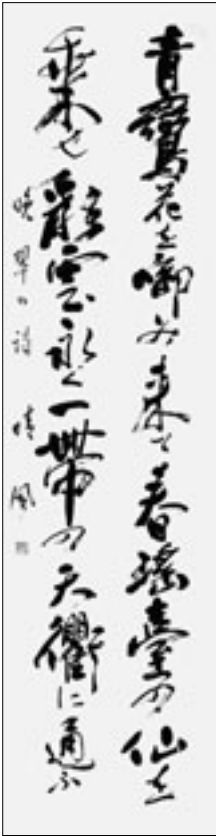 青鸞花を啣み来て春瑤臺の仙を
乗せ雲永く一帯の天衢に通ふ
晩翠の詩 晴風